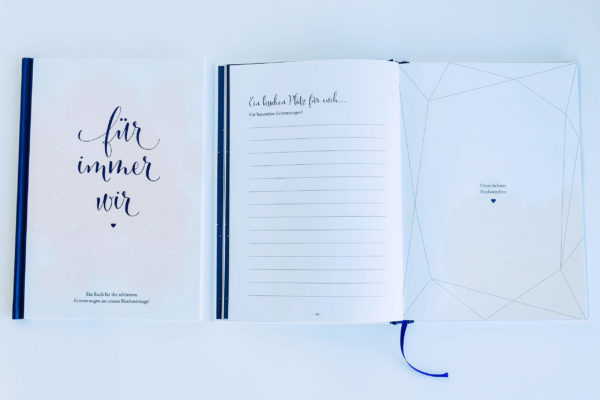 für
immer
wir
Ein Buch für die schönsten
Erinnerungen an unsere Hochzeitstage!
Ein bisschen Platz für euch...
Für besondere Erinnerungen!
Unsere liebsten